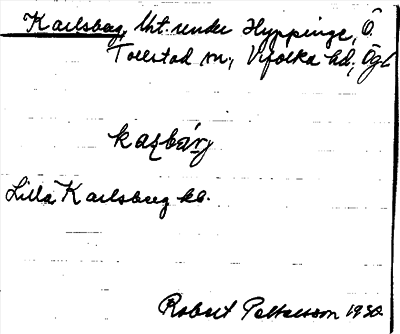 Karlsberg, lht. under Hyppinge, Ö.
Tollstad sn, Vifolka hd, Ögl.
kaɽbárj
Lilla Karlsberg kb.
Robert Pettersson 1930.